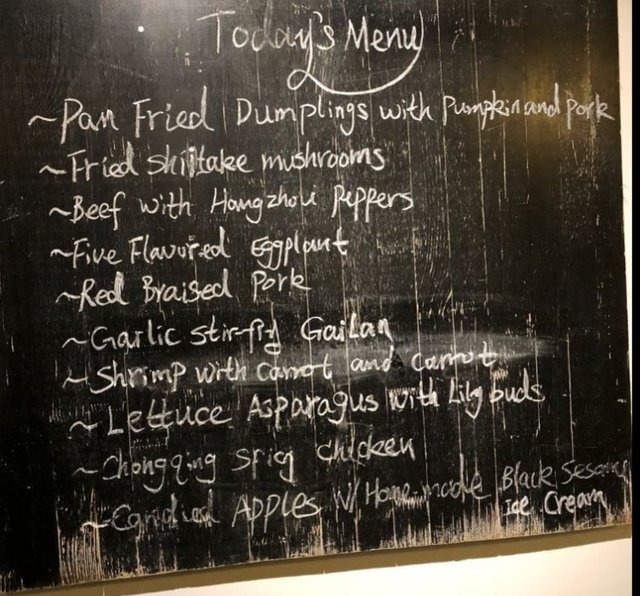 Today's Menu
~Pan Fried Dumplings with Pumpkin and Pork
~Fried shiitake mushrooms
~Beef with Hangzhou Peppers
~Five Flavored Eggplant
~Red Braised Pork
~Garlic stir-fry GaiLan
~Shrimp with Carrot and Carrot
~Lettuce Asparagus with Lily buds
~Chongqing spicy chicken
~Candied APPLES W/ Home-made Black Sesame
Ice Cream